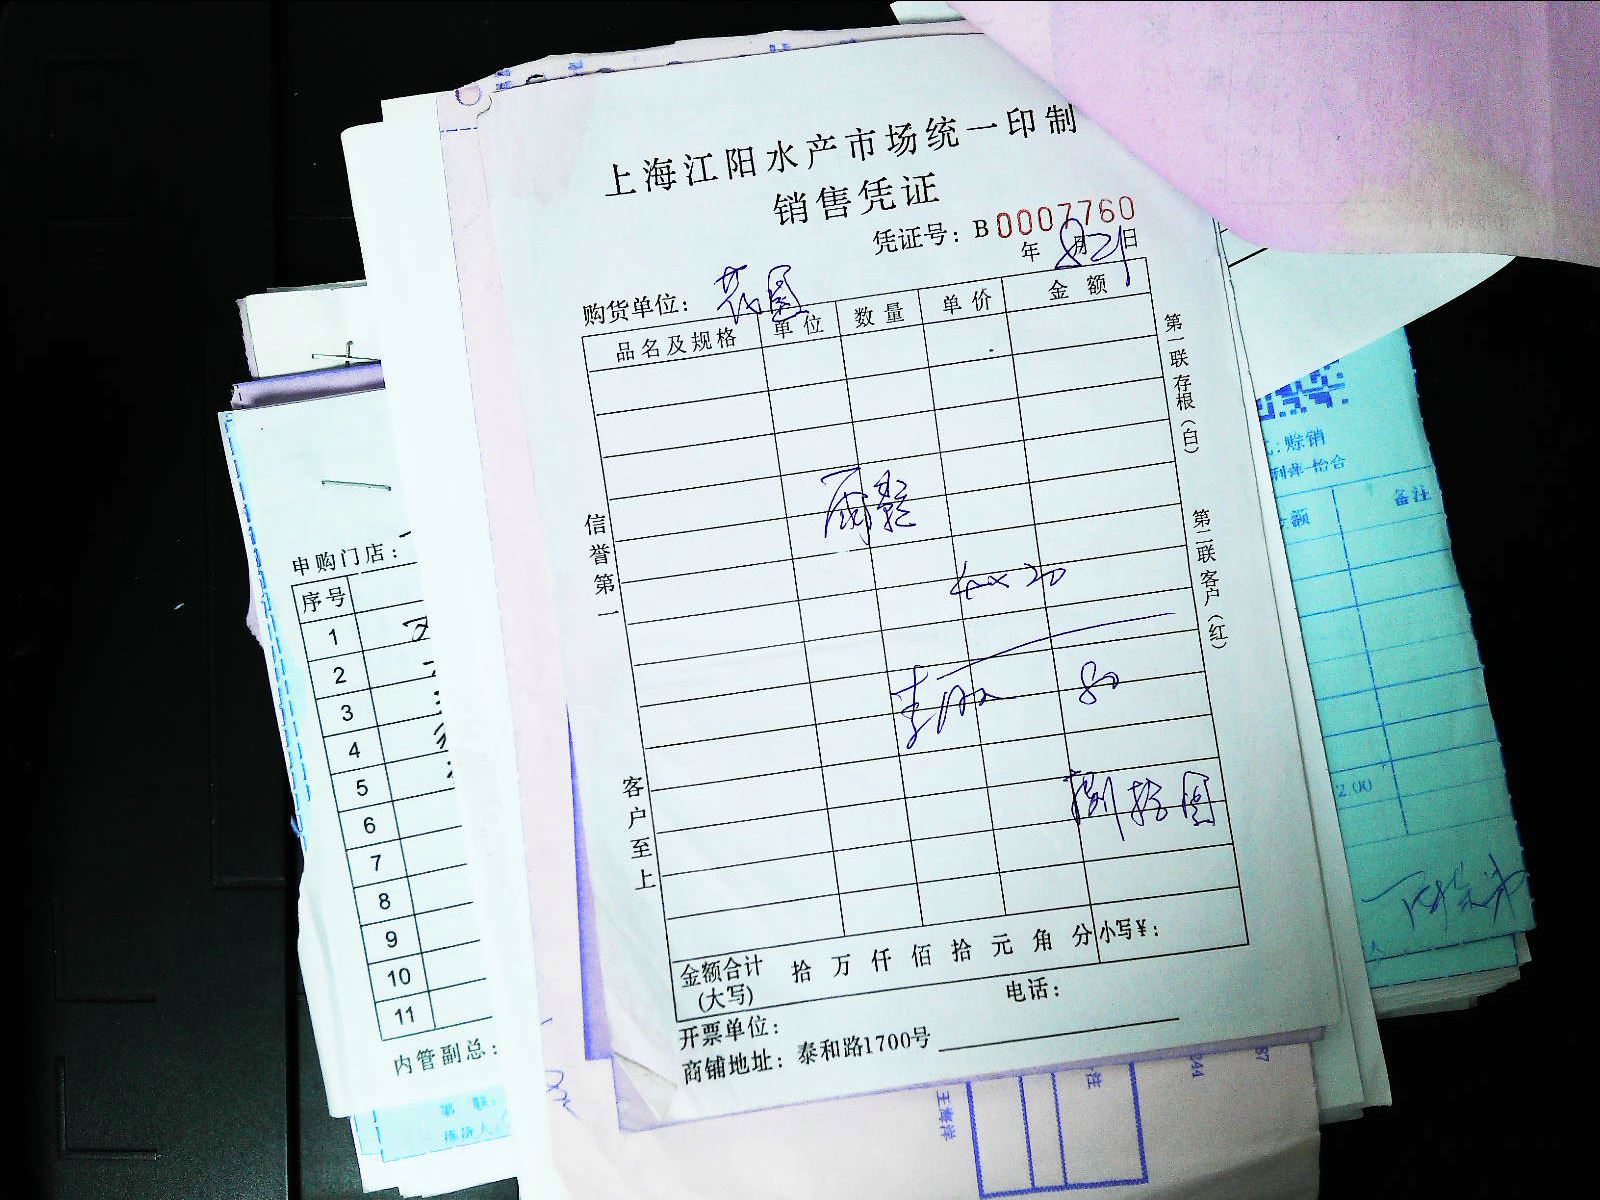 上海江阳水产市场统一印制
销售凭证
凭证号：B0007760
年8月21日
购货单位：花园
品名及规格 单位 数量 单价 金额
4×20
80
捌拾圆
金额合计(大写) 拾 万 仟 佰 拾 元 角 分 小写¥：
开票单位： 电话：
商铺地址：泰和路1700号
信誉第一
客户至上
第一联存根（白）
第二联客户（红）
申购门店：
序号
1
2
3
4
5
6
7
8
9
10
11
内管副总：
赊销
备注
2.00